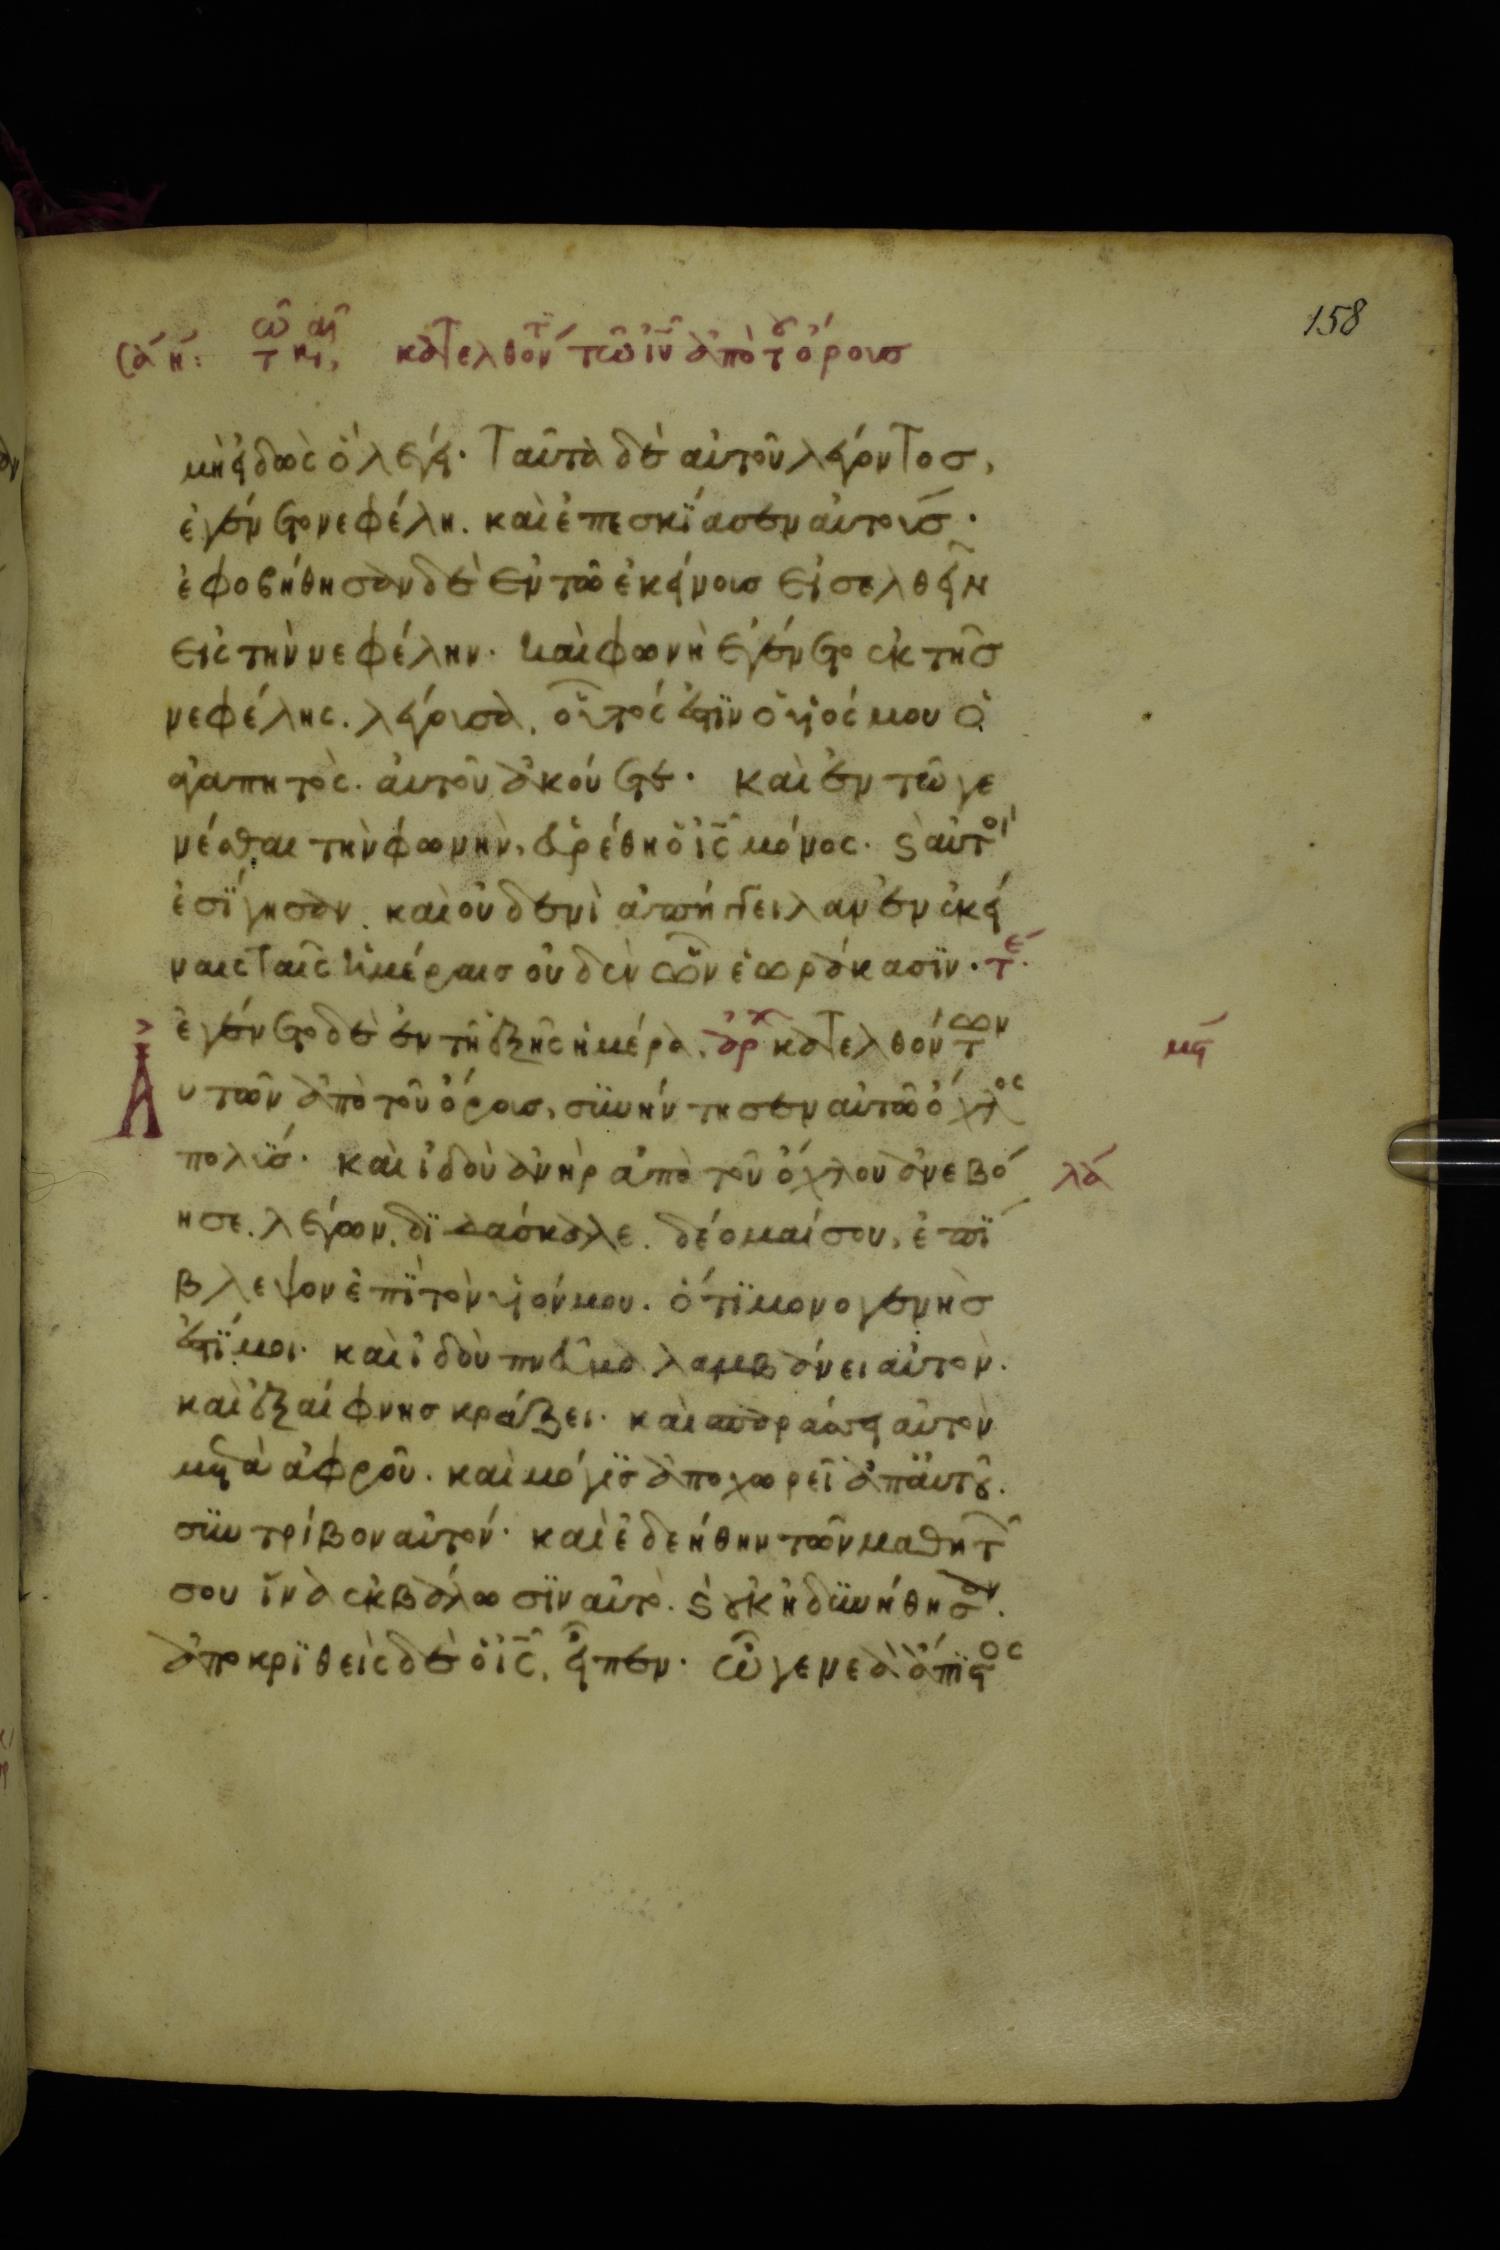 158
σα η: τω και, κατελθοντι τω ιυ απο του όρους
μὴ εἰδὼς ὁ λέγει. Ταῦτα δὲ αὐτοῦ λέγοντος,
ἐγένετο νεφέλη. καὶ ἐπεσκίασεν αὐτούς.
ἐφοβήθησαν δὲ ἐν τῶ ἐκείνους εἰσελθεῖν
εἰς τὴν νεφέλην. καὶ φωνὴ ἐγένετο ἐκ τῆς
νεφέλης. λέγουσα, οὗτός ἐστιν ὁ υἱός μου ὁ
ἀγαπητὸς. αὐτοῦ ἀκούετε. καὶ ἐν τῶ γε
νέσθαι τὴν φωνὴν, εὑρέθη ὁ ις μόνος. καὶ αὐτοὶ
ἐσίγησαν. καὶ οὐδενὶ ἀπήγγειλαν ἐν ἐκεί
ναις ταῖς ἡμέραις οὐδὲν ὧν ἑωράκασιν. τε
ἐγένετο δὲ ἐν τῆ ἑξῆς ἡμέρα. ἀρχ κατελθόντων μη
Α
υτῶν ἀπὸ τοῦ ὄρους, συνήντησεν αὐτῶ ὄχλος
πολύς. καὶ ἰδοὺ ἀνὴρ ἀπὸ τοῦ ὄχλου ἀνεβό λα
ησε. λέγων, διδάσκαλε. δέομαί σου, ἐπί
βλεψον ἐπὶ τὸν υἱόν μου. ὅτι μονογενὴς
ἐστί μοι. καὶ ἰδοὺ πνεῦμα λαμβάνει αὐτὸν.
καὶ ἐξαίφνης κράζει. καὶ σπαράσσει αὐτὸν
μετὰ ἀφροῦ. καὶ μόγις ἀποχωρεῖ ἀπ' αὐτοῦ.
συντρίβον αὐτόν. καὶ ἐδεήθην τῶν μαθητῶν
σου ἵνα ἐκβάλωσιν αὐτὸ. καὶ οὐκ ἠδυνήθησαν.
ἀποκριθεὶς δὲ ὁ ις, εἶπεν. ὦ γενεὰ ἄπιστος